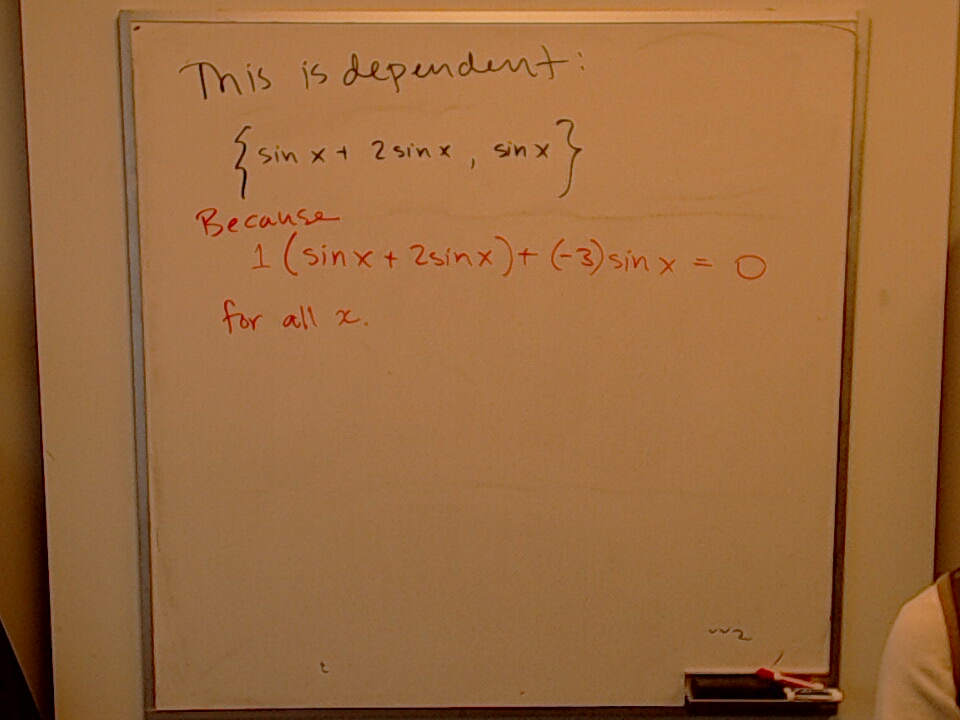 This is dependent:
{sin x + 2 sin x , sin x}
Because
1 (sin x + 2 sin x) + (-3) sin x = 0
for all x.